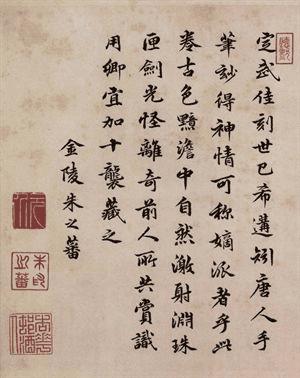 定武佳刻世已希遘矧唐人手
筆玅得神情可称嫡派者乎此
卷古色黯澹中自然激射淵珠
匣劍光怪離奇前人所共賞識
用卿宜加十襲藏之
金陵朱之蕃